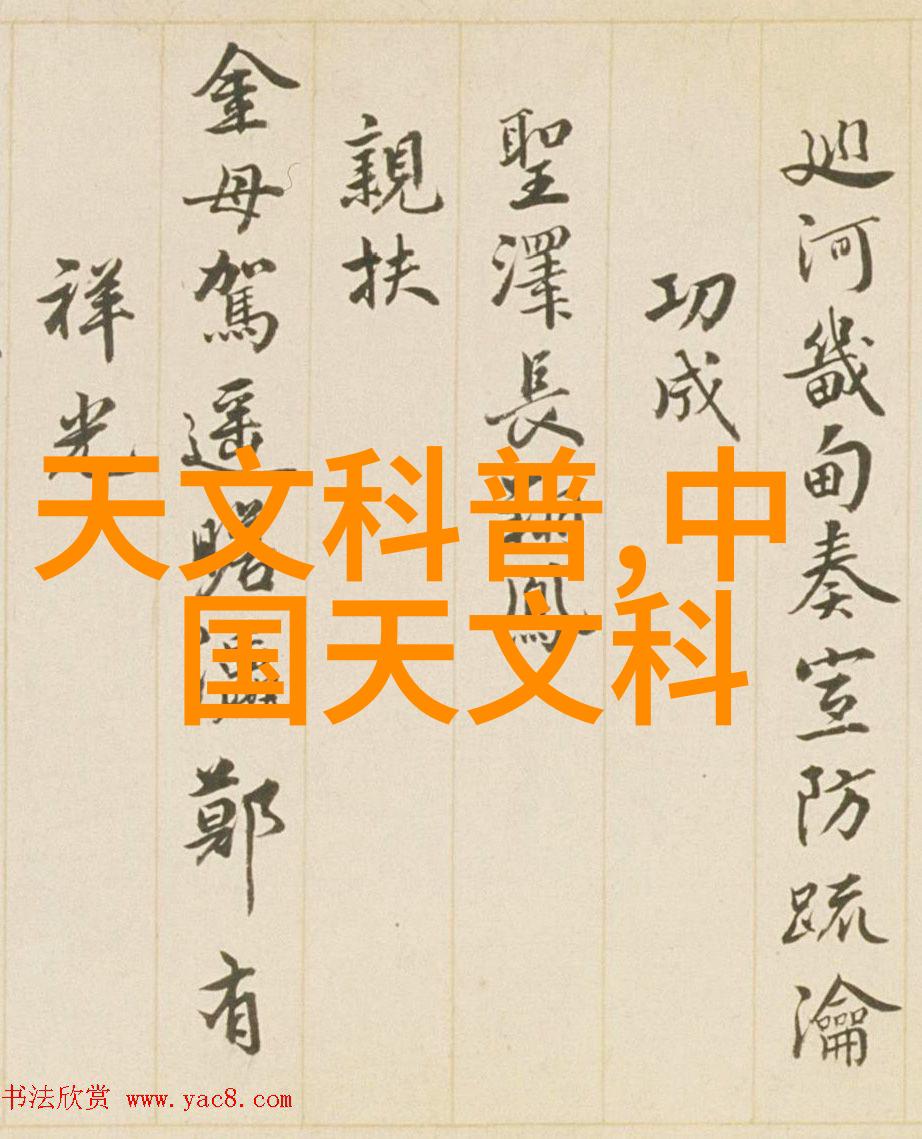 廵河畿甸奏宣防疏瀹
功成
聖澤長
親扶
金母駕遥瞻 鄭有
祥光
天文科普,中
国天文科
书法欣赏 www.yac8.com